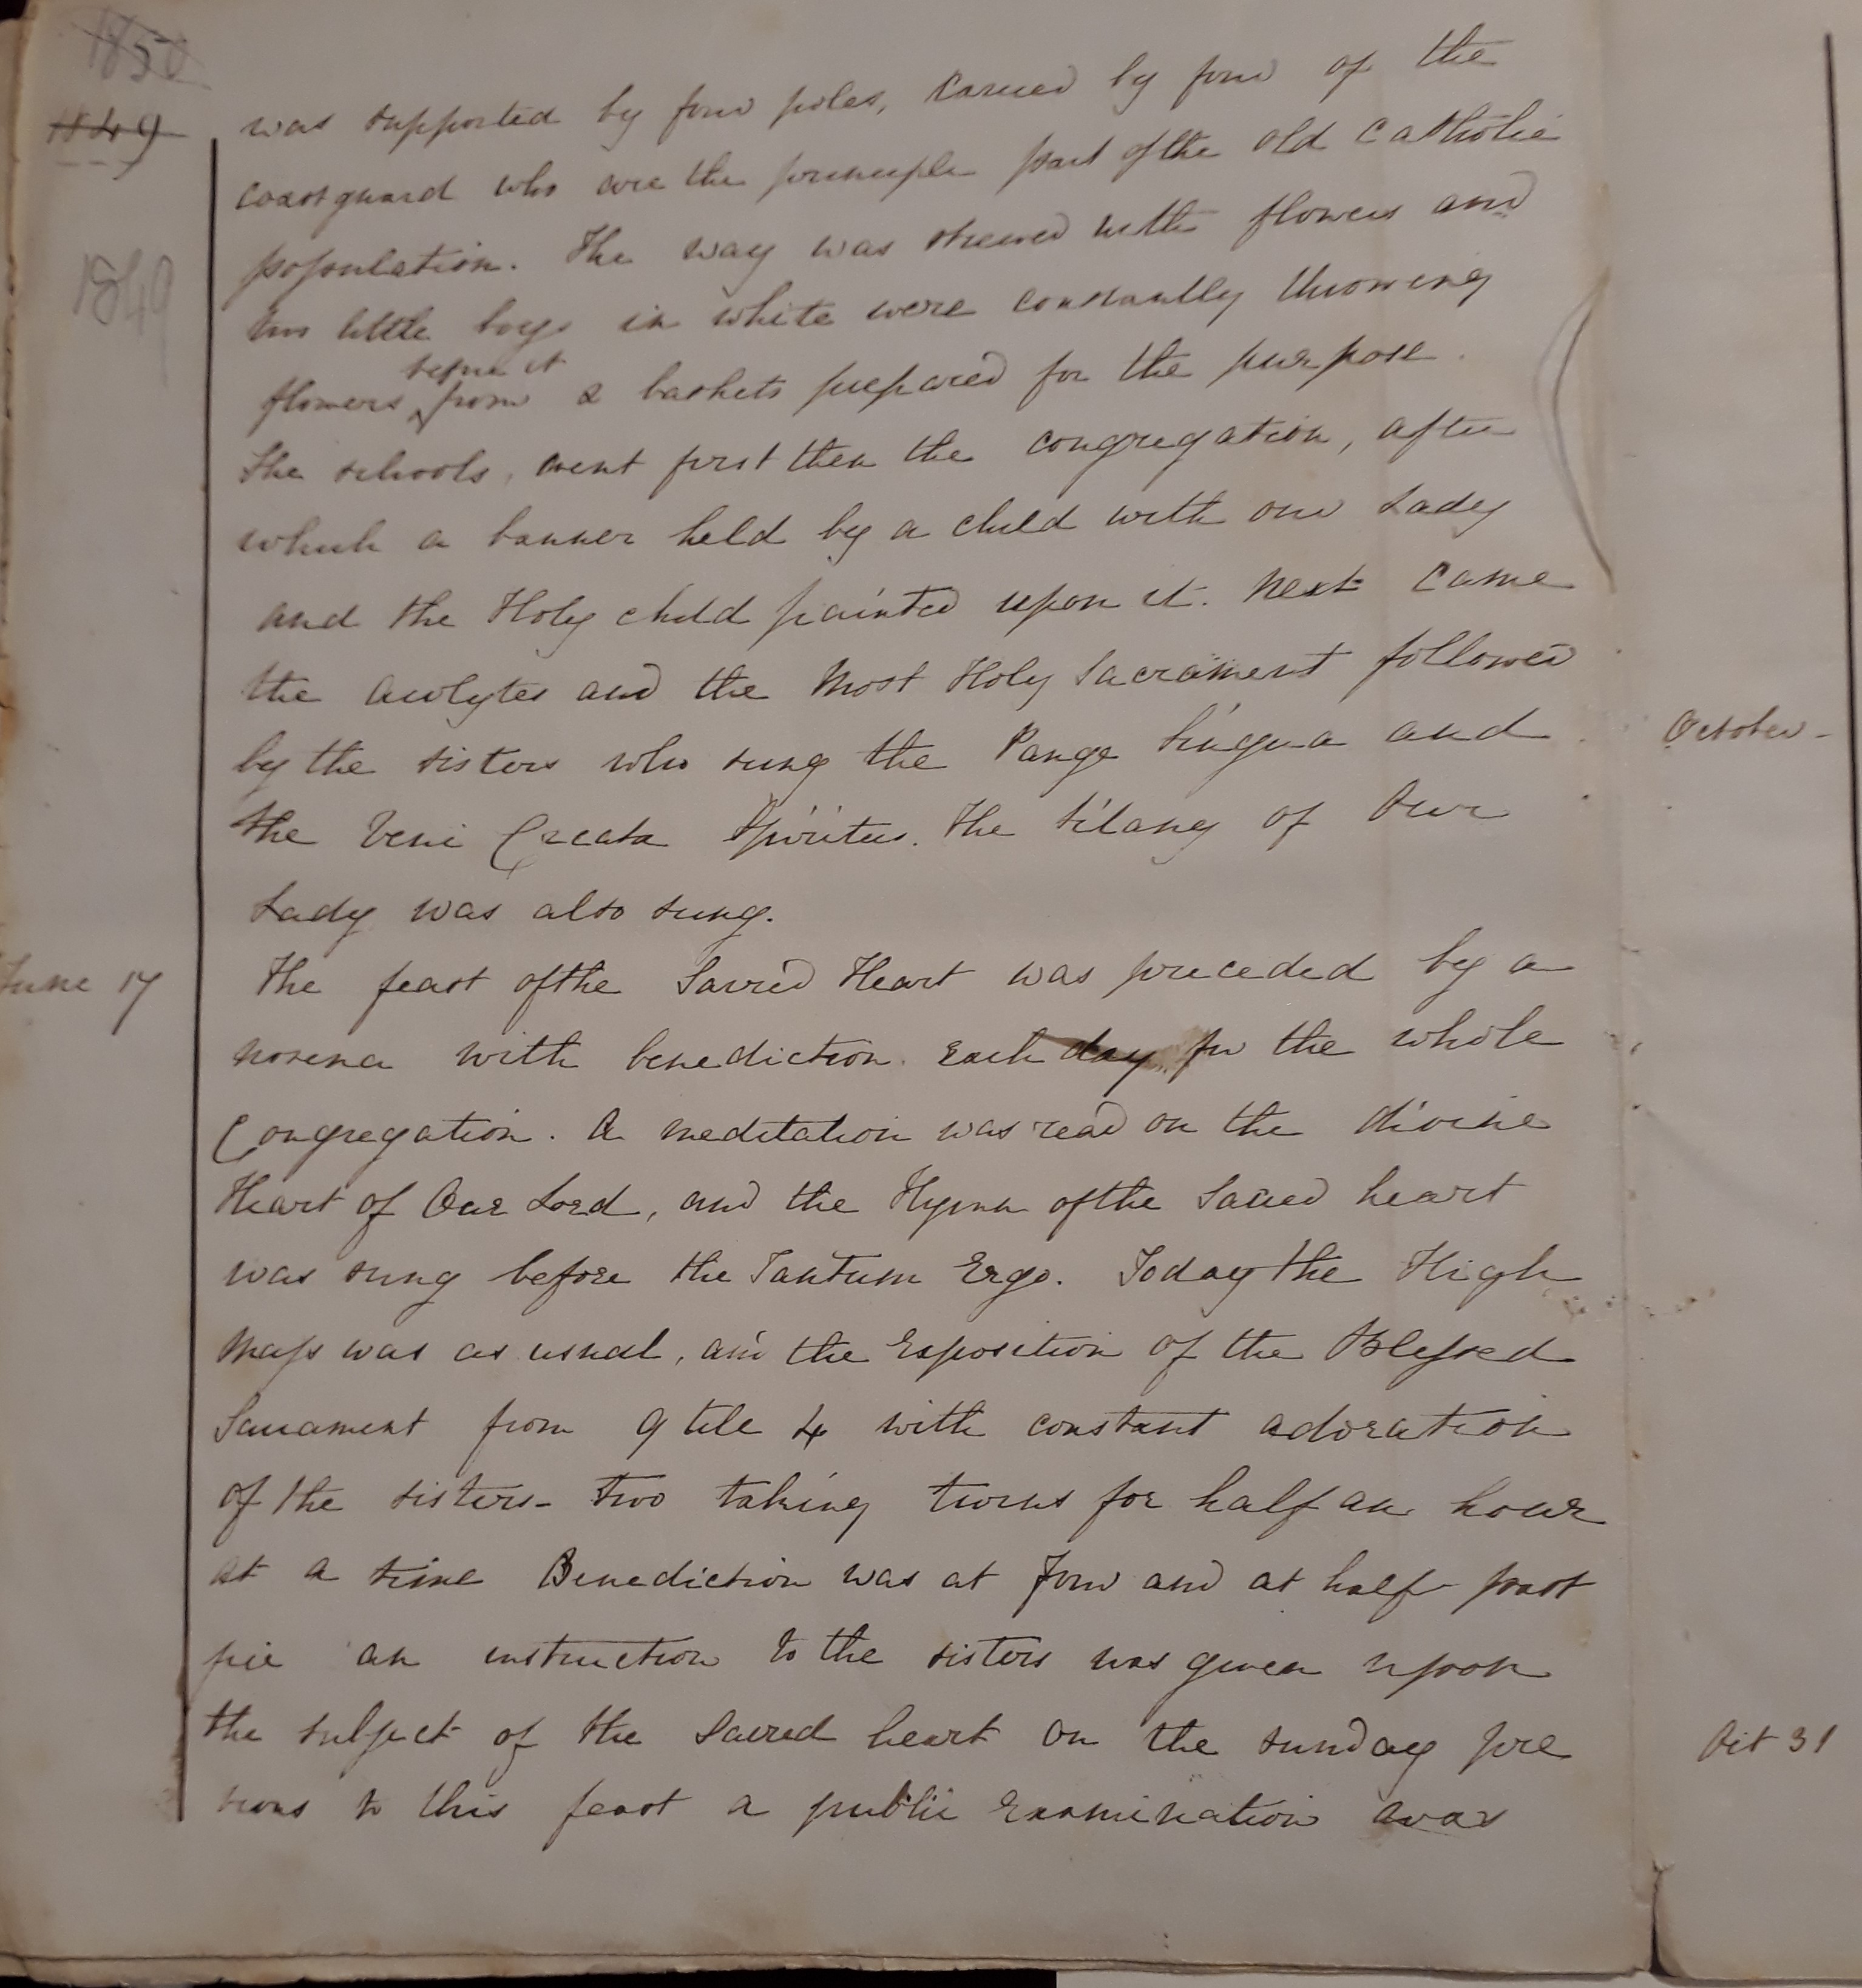 1850
1849
1849
was supported by four poles, carried by four of the
coastguard who are the principle part of the old Catholic
population. The way was strewed with flowers and
two little boys in white were constantly throwing
before it
flowers from 2 baskets prepared for the purpose.
The schools, went first then the congregation, after
which a banner held by a child with our Lady
and the Holy child painted upon it. Next came
the acolytes and the Most Holy Sacrament followed
by the sisters who sung the Pange Lingua and
the Veni Creator Spiritus. The Litany of Our
Lady was also sung.
June 17
The feast of the Sacred Heart was preceded by a
novena with benediction. Each day for the whole
Congregation. A meditation was read on the divine
Heart of Our Lord, and the Hymn of the Sacred heart
was sung before the Tantum Ergo. Today the High
Mass was as usual, and the Exposition of the Blessed
Sacrament from 9 till 4 with constant adoration
of the sisters - Two taking turns for half an hour
at a time Benediction was at Four and at half past
five an instruction to the sisters was given upon
the subject of the Sacred heart on the sunday pre
vious to this feast a public Examination was
October -
Oct 31